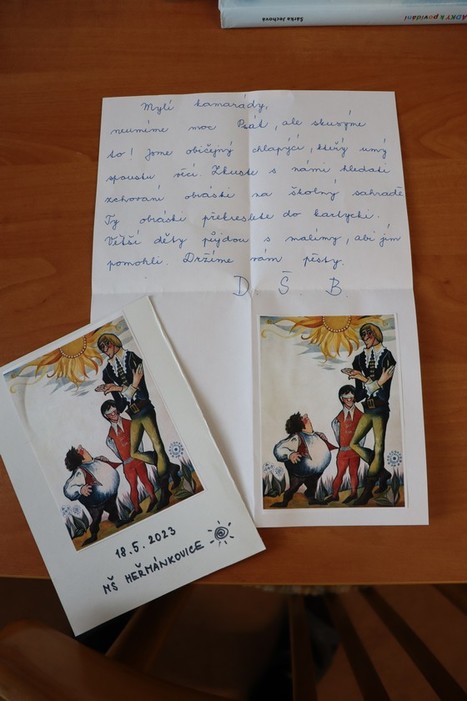 Šárka Jechová
ÁDKY k povídání
Mylí kamarády,
neumíme moc Psát, ale skusýme
to! Jsme občejný chlapýci, kteřý umý
spoustu věcí. Zkuste s námi hledati
schovaní obrásti na školny sahradě
Ty obrásti překreslete do kartycki.
Větší děty půjdou s malímy, abi jím
pomohli. Držíme vám pěsty.
D. Š. B.
18. 5. 2023
MŠ HEŘMÁNKOVICE